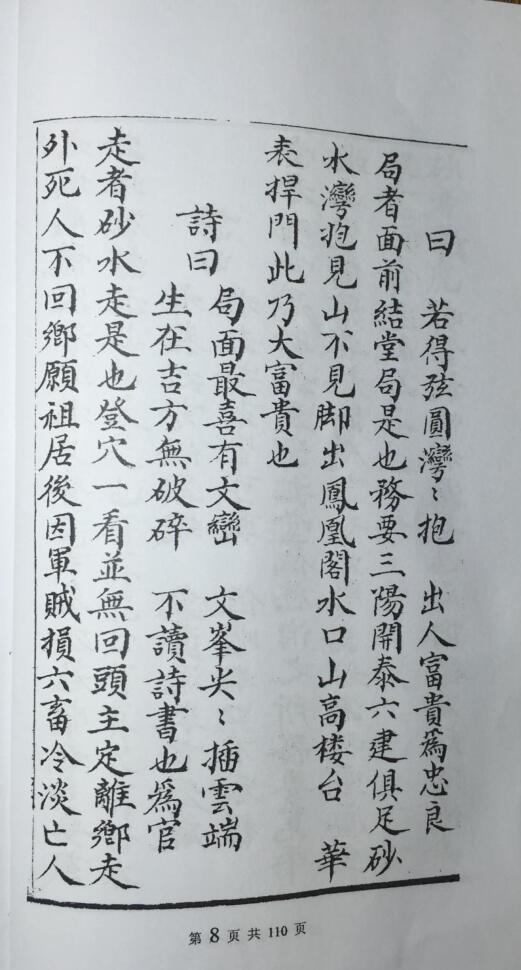 曰　若得弦圓灣〻抱　出人富貴為忠良
局者面前結堂局是也務要三陽開泰六建俱足砂
水灣抱見山不見脚出鳳凰閣水口山高楼台　華
表捍門此乃大富貴也
詩曰
局面最喜有文巒　文峯尖〻插雲端
生在吉方無破碎　不讀詩書也為官
走者砂水走是也登穴一看並無回頭主定離鄉走
外死人不回鄉願祖居後因軍賊損六畜冷淡亡人
第 8 页 共 110 页